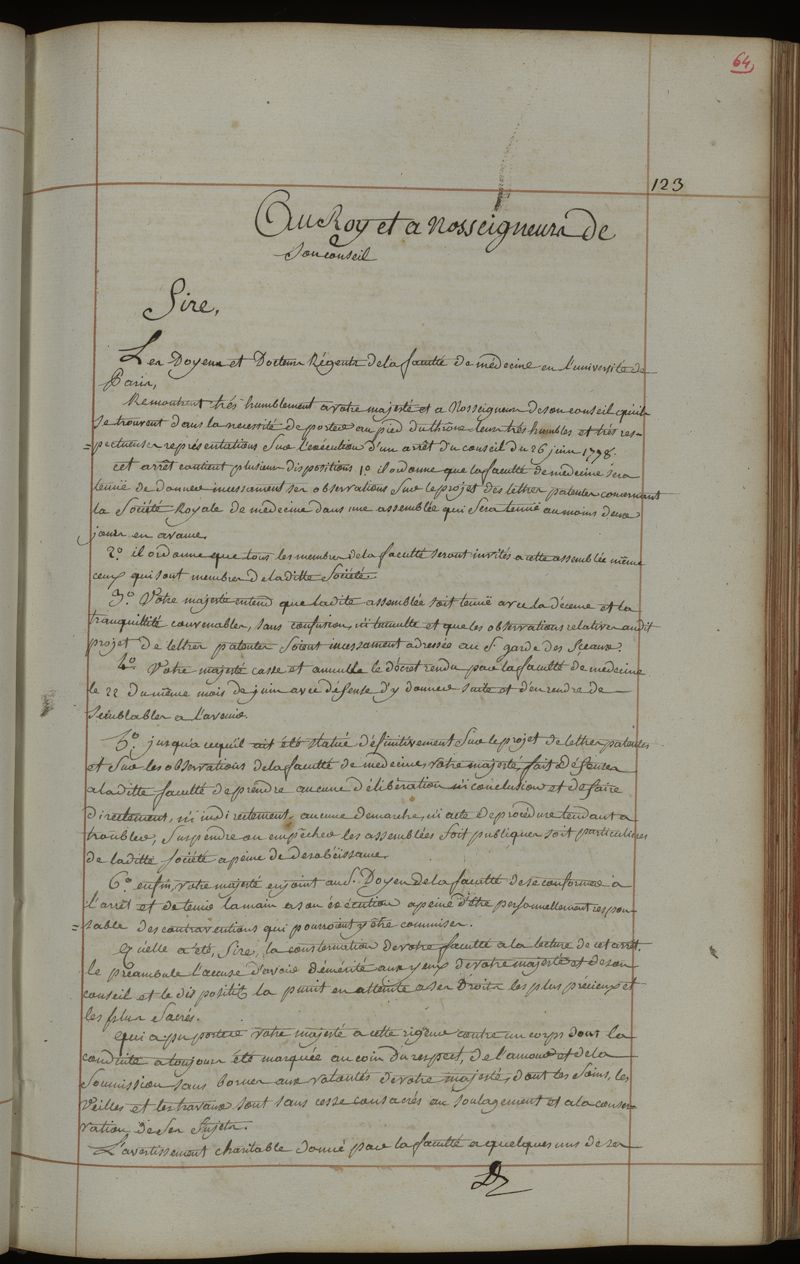 64
123
Au Roy et a Nosseigneurs de
Son conseil
Sire,
Les Doyens et Docteurs Régents de la faculté de médecine en l'université de
Paris,
Remontrent très humblement a votre majesté et a Nosseigneurs de son conseil qu'ils
se trouvent dans la necessité de porter au pied du thrône leurs très humbles et très res-
=pectueuses représentations sur l'exécution d'un arrêt du conseil du 26 juin 1778.
cet arrêt contient plusieurs dispositions 1.o il ordonne que la faculté de médecine sera
tenuë de donner incessament ses observations sur le projet des lettres patentes concernant
la Société Royale de médecine dans une assemblée qui sera tenuë au moins deux
jours en avance.
2.o il ordonne que tous les membres de la faculté seront invités a cette assemblée même
ceux qui sont membres de la ditte Société.
3.o Votre majesté entend que ladite assemblée soit tenuë avec la décence et la
tranquillité convenables, sans confusion, ni tumulte et que les observations relatives audit
projet de lettres patentes soient incessament adressées au S. garde des Sceaux.
4.o Votre majesté casse et annulle le décret rendu par la faculté de médecine
le 22 du même mois de juin avec défense d'y donner suite et d'en rendre de
semblables a l'avenir.
5.o jusqu'a ce qu'il ait été statué définitivement sur le projet de lettres patentes
et sur les observations de la faculté de médecine, votre majesté fait défenses
a la ditte faculté de prendre aucune déliberation ni conclusion et de faire
directement, ni indirectement, aucune demarche, ni acte de procédure tendant a
troubler, suspendre ou empêcher les assemblées soit publiques soit particulieres
de la ditte Société a peine de desobéissance.
6.o enfin, votre majesté enjoint au S. Doyen de la faculté de se conformer à
l'arrêt et de tenir la main a son exécution a peine d'être personnellement respon-
=sable des contraventions qui pourroient y être commises.
Quelle a été, Sire, la consternation de votre faculté a la lecture de cet arrêt,
le préambule l'accuse d'avoir démérité aux yeux de votre majesté et de son
conseil et le dispositif la punit en atteinte a ses Droits les plus précieux et
les plus Sacrés.
Qui a pu porter votre majesté a cette rigueur contre un corps dont la
conduite a toujours été marquée au coin du respect, de l'amour et de la
soumission sans bornes aux volontés de votre majesté, dont les Soins, les
veilles et les travaux sont sans cesse consacrés au soulagement et a la conser-
vation de ses Sujets.
L'avertissement charitable donné par la faculté a quelques uns de ses